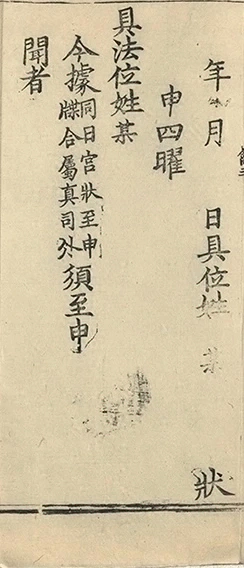 年 月 日具位姓 某 狀
申四曜
具法位姓某
今據同日宫狀至申牒合屬真司外須至申
聞者